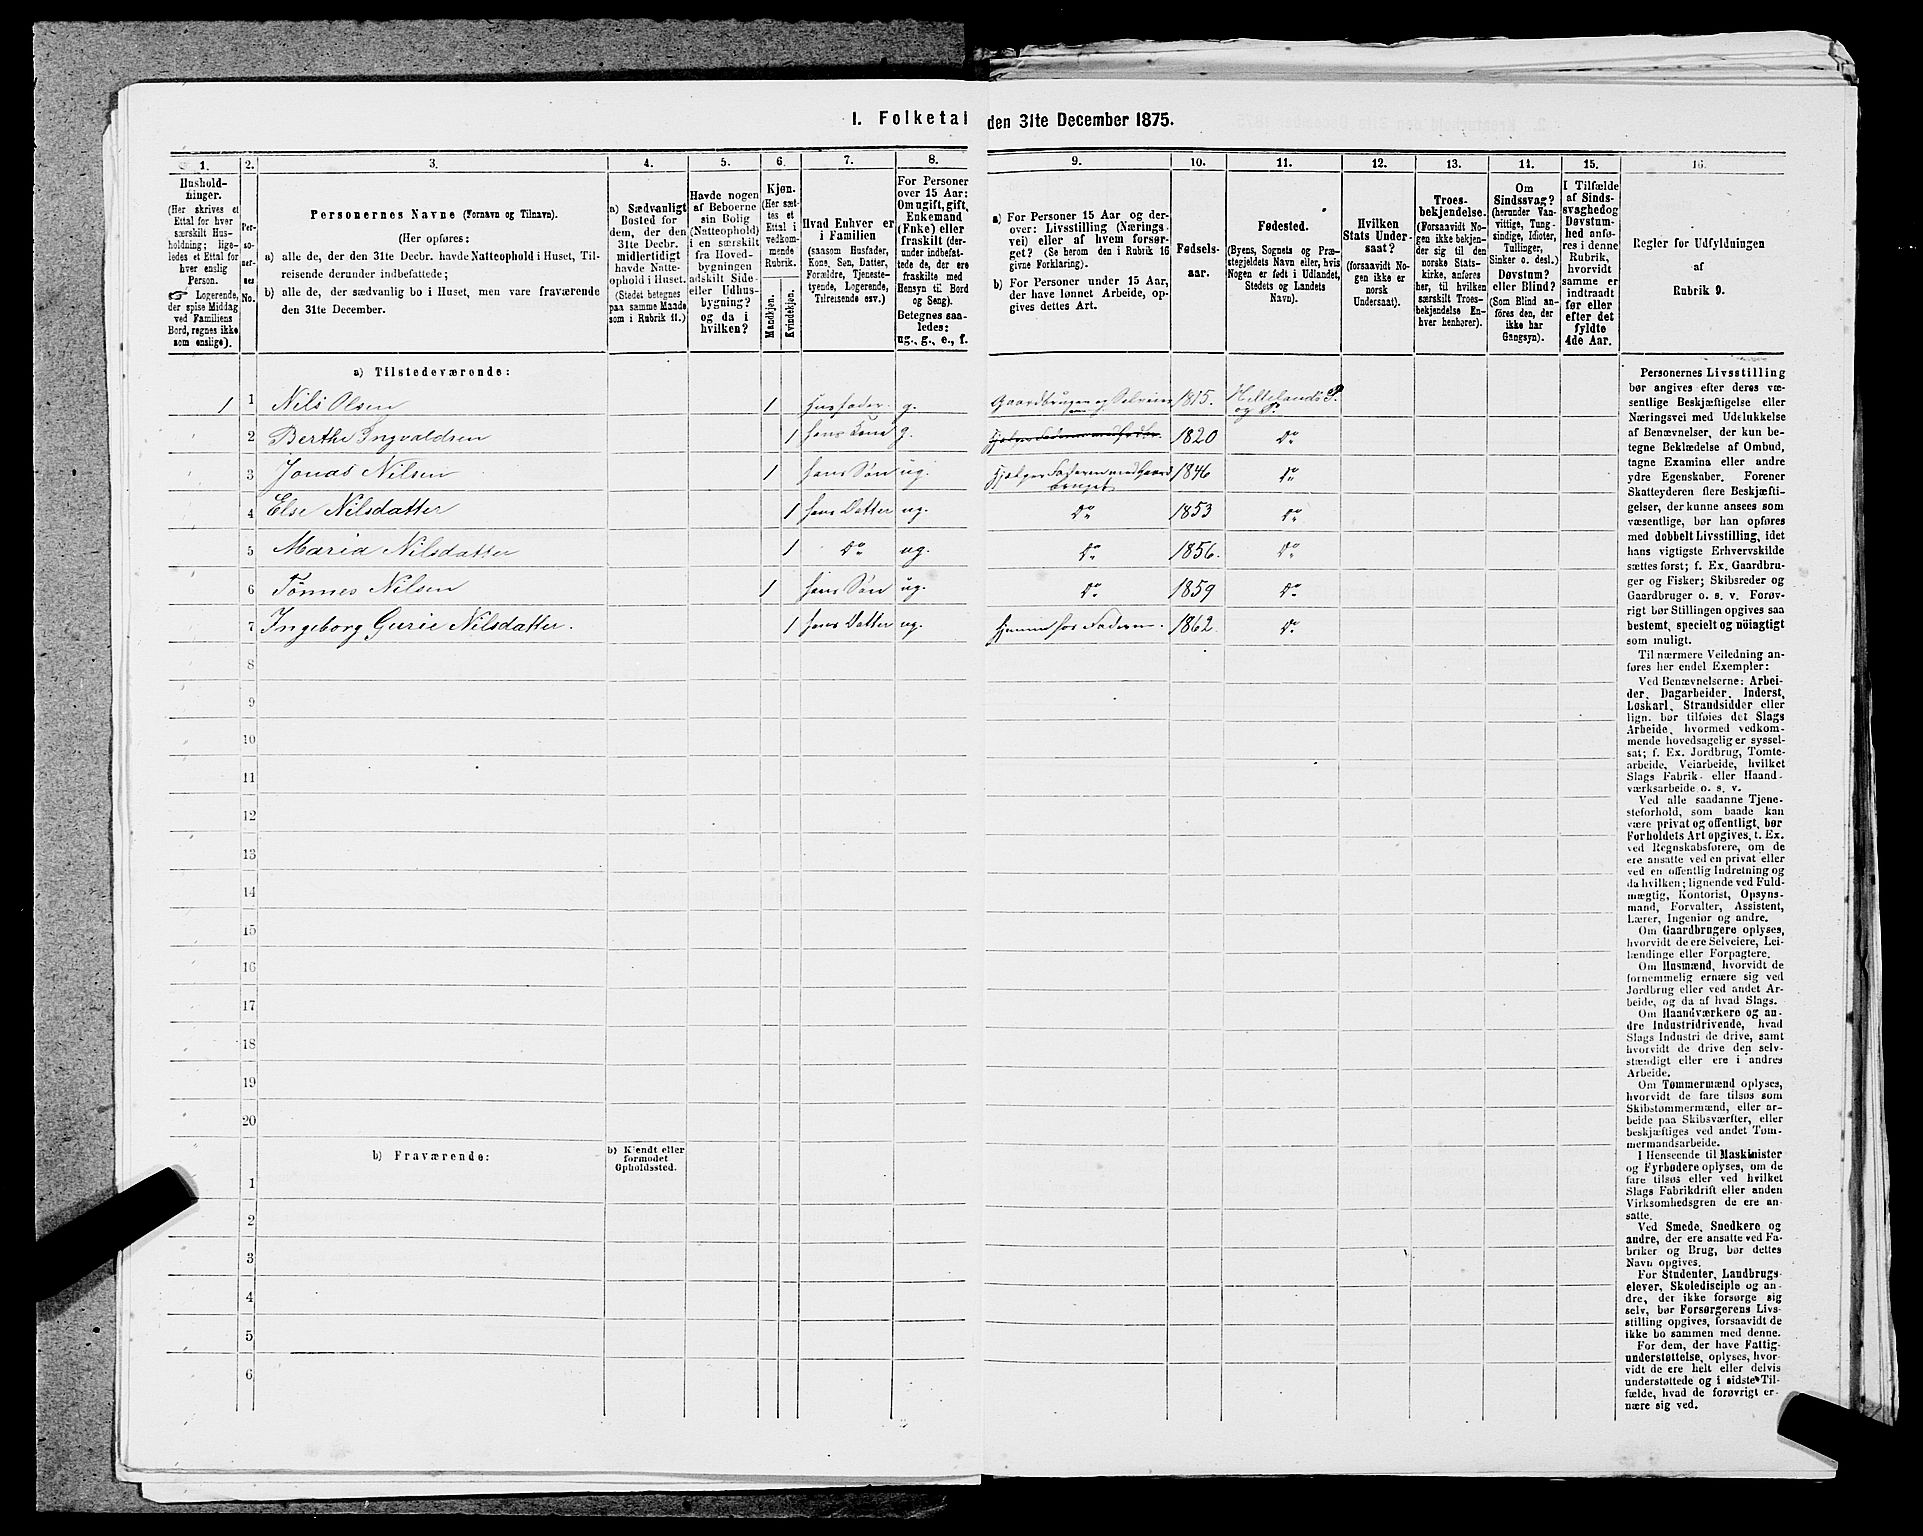 I. Folketal den 31te December 1875.
1. 2. 3. 4. 5. 6. 7. 8. 9. 10. 11. 12. 13. 14. 15. 16.
Hushold-
ninger.
(Her skrives et
Ettal for hver
særskilt Hus-
holdning; lige-
ledes et Ettal for
hver enslig
Person.
☞ Logerende,
der spise Middag
ved Familiens
Bord, regnes ikke
som enslige).
Per-
so-
ner-
nes
No.
Personernes Navne (Fornavn og Tilnavn).
(Her opføres:
a) alle de, der den 31te Decbr. havde Natteophold i Huset, Til-
reisende derunder indbefattede;
b) alle de, der sædvanlig bo i Huset, men vare fraværende
den 31te December.
a) Sædvanligt
Bosted for
dem, der den
31te Decbr.
midlertidigt
havde Natte-
ophold i Huset.
(Stedet betegnes
paa samme Maade
som i Rubrik 11.)
Havde nogen
af Beboerne
sin Bolig
(Natteophold)
i en særskilt
fra Hoved-
bygningen
adskilt Side
eller Udhus-
bygning?
og da i
hvilken?
Kjøn.
(Her sæt-
tes et
Ettal i
vedkom-
mende
Rubrik.
Mandkjøn.
Kvindekjøn.
Hvad Enhver er
i Familien
(saasom Husfader,
Kone, Søn, Datter,
Forældre, Tjeneste-
tyende, Logerende,
Tilreisende osv.)
For Personer
over 15 Aar:
Om ugift, gift,
Enkemand
(Enke) eller
fraskilt (der-
under indbefat-
tede de, der ere
fraskilte med
Hensyn til Bord
og Seng).
Betegnes saa-
ledes:
ug., g., e., f.
a) For Personer 15 Aar og der-
over: Livsstilling (Nærings-
vei) eller af hvem forsør-
get? (Se herom den i Rubrik 16
givne Forklaring).
b) For Personer under 15 Aar,
der have lønnet Arbeide, op-
gives dettes Art.
Fødsels-
aar.
Fødested.
(Byens, Sognets og Præ-
stegjeldets Navn eller, hvis
Nogen er født i Udlandet,
Stedets og Landets
Navn).
Hvilken
Stats Under-
saat?
(forsaavidt No-
gen ikke er
norsk
Undersaat).
Troes-
bekjendelse.
(Forsaavidt No-
gen ikke bekjen-
der sig til den
norske Stats-
kirke, anføres
her, til hvilken
særskilt Troes-
bekjendelse En-
hver henhører).
Om
Sindssvag?
(herunder Van-
vittige, Tung-
sindige, Idioter,
Tullinger,
Sinker o. desl.)
Døvstum?
eller Blind?
(Som Blind an-
føres den, der
ikke har
Gangsyn).
I Tilfælde
af Sinds-
svaghed og
Døvstum-
hed anfø-
res i denne
Rubrik,
hvorvidt
samme er
indtraadt
før eller
efter det
fyldte
4de Aar.
Regler for Udfyldningen
af
Rubrik 9.
a) Tilstedeværende:
1 1 Nils Olsen 1 Husfader. g. Gaardbruger og Selveier 1815. Hellelands S. og P.
2 Berthe Ingvaldsen 1 hans Kone g. 1820 Do
3 Jonas Nilsen 1 hans Søn ug. Hjelper Faderen med Gaardbruget 1846 Do
4 Else Nilsdatter 1 hans Datter ug. Do 1853 Do
5 Maria Nilsdatter 1 Do ug. Do 1856. Do
6 Tönnes Nilsen 1 hans Søn ug. Do 1859 Do
7 Ingeborg Gurie Nilsdatter. 1 hans Datter ug. Hjemme hos Faderen. 1862. Do
8
9
10
11
12
13
14
15
16
17
18
19
20
b) Fraværende:
b) Kjendt eller
formodet
Opholdssted.
1
2
3
4
5
6
Personernes Livsstilling
bør angives efter deres væ-
sentlige Beskjæftigelse eller
Næringsvei med Udelukkelse
af Benævnelser, der kun be-
tegne Beklædelse af Ombud,
tagne Examina eller andre
ydre Egenskaber. Forener
Skatteyderen flere Beskjæfti-
gelser, der kunne ansees som
væsentlige, bør han opføres
med dobbelt Livsstilling, idet
hans vigtigste Erhvervskilde
sættes først; f. Ex. Gaardbru-
ger og Fisker; Skibsreder og
Gaardbruger o. s. v. Forøv-
rigt bør Stillingen opgives saa
bestemt, specielt og nöiagtigt
som muligt.
Til nærmere Veiledning an-
føres her endel Exempler:
Ved Benævnelserne: Arbei-
der, Dagarbeider, Inderst,
Løskarl, Strandsidder eller
lign. bør tilføies det Slags
Arbeide, hvormed vedkom-
mende hovedsagelig er syssel-
sat; f. Ex. Jordbrug, Tomte-
arbeide, Veiarbeide, hvilket
Slags Fabrik- eller Haand-
værksarbeide o. s. v.
Ved alle saadanne Tjene-
steforhold, som baade kan
være privat og offentligt, bør
Forholdets Art opgives, f. Ex.
ved Regnskabsførere, om de
ere ansatte ved en privat eller
ved en offentlig Indretning og
da hvilken; lignende ved Fuld-
mægtig, Kontorist, Opsyns-
mand, Forvalter, Assistent,
Lærer, Ingeniør og andre.
Om Gaardbrugere oplyses,
hvorvidt de ere Selveiere, Lei-
lændinge eller Forpagtere.
Om Husmænd, hvorvidt de
fornemmelig ernære sig ved
Jordbrug eller ved andet Ar-
beide, og da af hvad Slags.
Om Haandværkere og an-
dre Industridrivende, hvad
Slags Industri de drive, samt
hvorvidt de drive den selv-
stændigt eller ere i andres
Arbeide.
Om Tømmermænd oplyses,
hvorvidt de fare tilsøs som
Skibstømmermænd, eller ar-
beide paa Skibsværfter, eller
beskjæftiges ved andet Tøm-
mermandsarbeide.
I Henseende til Maskinister
og Fyrbødere oplyses, om de
fare tilsøs eller ved hvilket
Slags Fabrikdrift eller anden
Virksomhedsgren de ere an-
satte.
Ved Smede, Snedkere og
andre, der ere ansatte ved Fa-
briker og Brug, bør dettes
Navn opgives.
For Studenter, Landbrugs-
elever, Skoledisciple og an-
dre, der ikke forsørge sig
selv, bør Forsørgerens Livs-
stilling opgives, forsaavidt de
ikke bo sammen med denne.
For dem, der have Fattig-
understøttelse, oplyses, hvor-
vidt de ere helt eller delvis
understøttede og i sidste Til-
fælde, hvad de forøvrigt er-
nære sig ved.